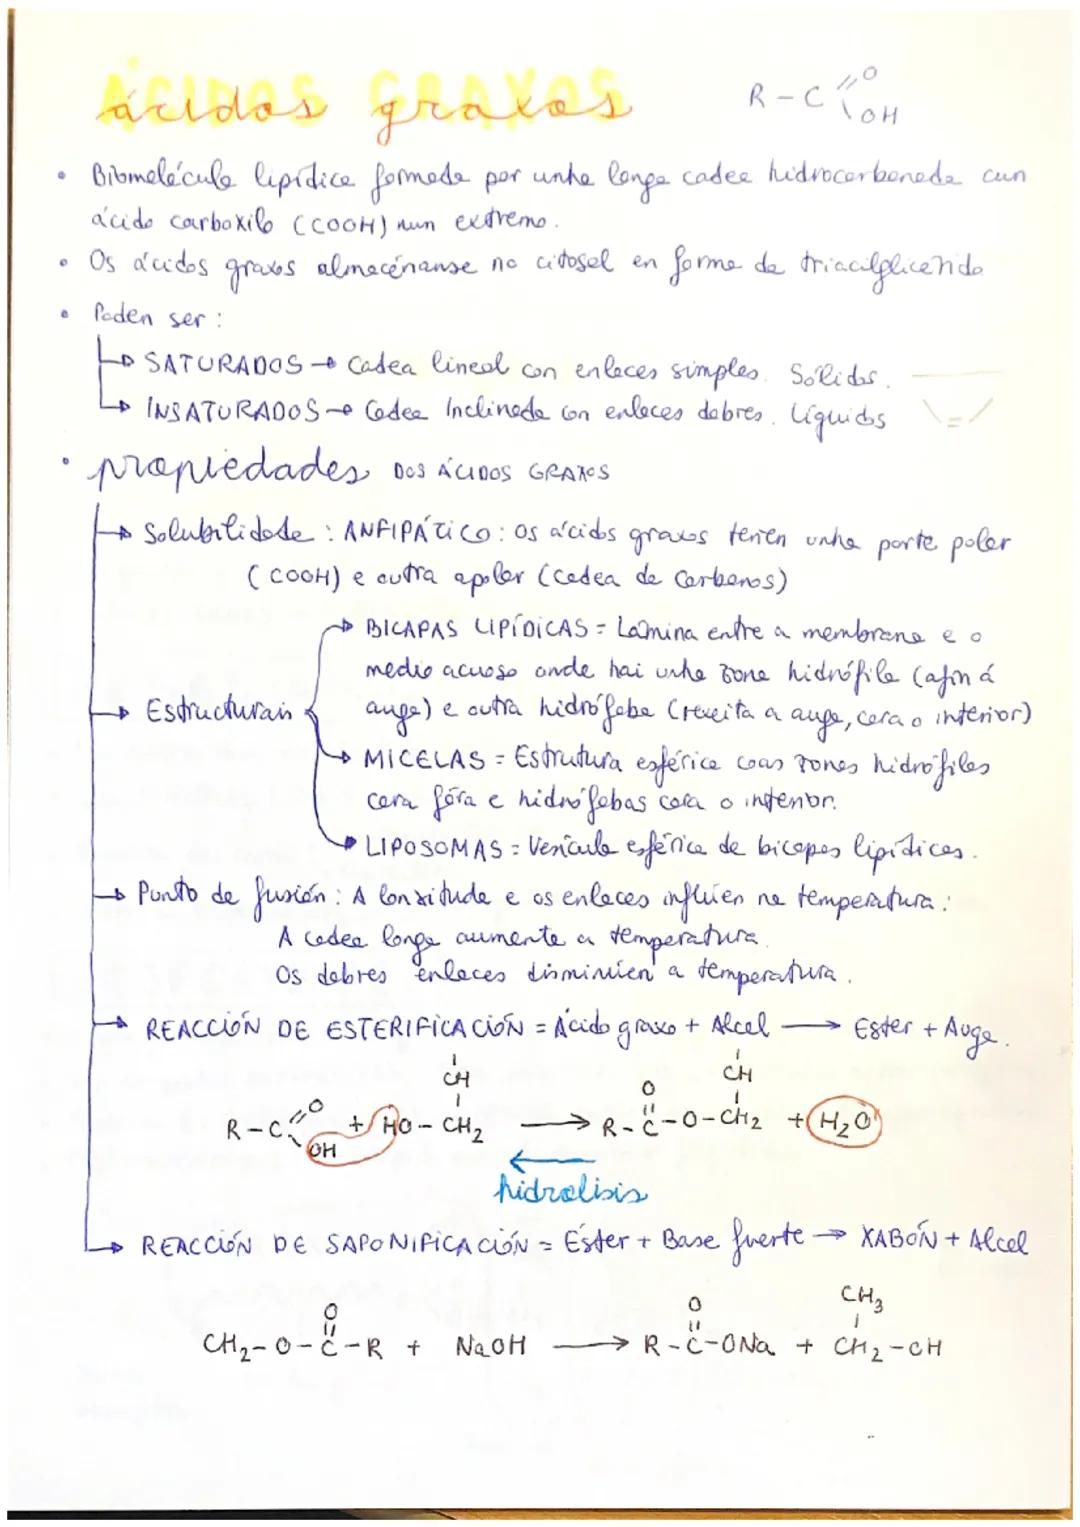 ácidos graxos
R-C=O
OH
• Biomolécula lipídica formada por unha longa cadea hidrocarbonada cun
ácido carboxilo (COOH) nun extremo.
• Os ácidos graxos almacénanse no citosol en forma de triacilglicérido
• Poden ser:
→ SATURADOS → Cadea lineal con enlaces simples. Sólidos.
→ INSATURADOS → Cadea Inclinada con enlaces dobres. Líquidos
• propiedades DOS ÁCIDOS GRAXOS
→ Solubilidade: ANFIPÁTICO: Os ácidos graxos teñen unha parte polar
(COOH) e outra apolar (Cadea de Carbonos)
→ BICAPAS LIPÍDICAS = Lámina entre a membrana e o
medio acuoso onde hai unha zona hidrófila (afín á
→ Estructurais
auga) e outra hidrófoba (rexeita a auga, cara o interior)
→ MICELAS = Estrutura esférica coas zonas hidrófilas
cara fóra e hidrófobas cara o interior.
→ LIPOSOMAS = Vesícula esférica de bicapas lipídicas.
→ Punto de fusión: A lonxitude e os enlaces inflúen na temperatura:
A cadea longa aumenta a temperatura.
Os dobres enlaces disminúen a temperatura.
→ REACCIÓN DE ESTERIFICACIÓN = Ácido graxo + Alcol → Éster + Auga.
CH CH
R-C=O OH + HO-CH₂ → R-C(=O)-O-CH₂ + H₂O
←
hidrolisis
→ REACCIÓN DE SAPONIFICACIÓN = Éster + Base fuerte → XABÓN + Alcol
CH₃
CH₂-O-C(=O)-R + NaOH → R-C(=O)-ONa + CH₂-OH